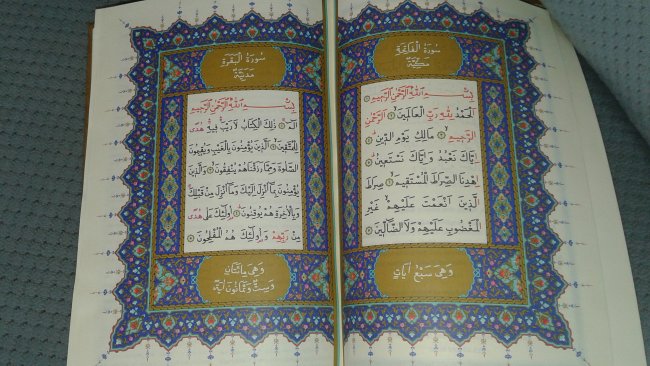 سُورَةُ الْفَاتِحَةِ
مَكِّيَّةٌ
بِسْمِ اللّٰهِ الرَّحْمٰنِ الرَّحِيمِ
اَلْحَمْدُ لِلّٰهِ رَبِّ الْعَالَمِينَ الرَّحْمٰنِ
الرَّحِيمِ مَالِكِ يَوْمِ الدِّينِ
اِيَّاكَ نَعْبُدُ وَاِيَّاكَ نَسْتَعِينُ
اِهْدِنَا الصِّرَاطَ الْمُسْتَقِيمَ صِرَاطَ
الَّذِينَ اَنْعَمْتَ عَلَيْهِمْ غَيْرِ
الْمَغْضُوبِ عَلَيْهِمْ وَلَا الضَّالِّينَ
وَهِيَ سَبْعُ اٰيَاتٍ
سُورَةُ الْبَقَرَةِ
مَدَنِيَّةٌ
بِسْمِ اللّٰهِ الرَّحْمٰنِ الرَّحِيمِ
الٓمٓ ذٰلِكَ الْكِتَابُ لَا رَيْبَ فِيهِ هُدًى
لِلْمُتَّقِينَ اَلَّذِينَ يُؤْمِنُونَ بِالْغَيْبِ وَيُقِيمُونَ
الصَّلٰوةَ وَمِمَّا رَزَقْنَاهُمْ يُنْفِقُونَ وَالَّذِينَ
يُؤْمِنُونَ بِمَا اُنْزِلَ اِلَيْكَ وَمَا اُنْزِلَ مِنْ قَبْلِكَ
وَبِالْاٰخِرَةِ هُمْ يُوقِنُونَ اُولٰئِكَ عَلٰى هُدًى
مِنْ رَبِّهِمْ وَاُولٰئِكَ هُمُ الْمُفْلِحُونَ
وَهِيَ مِائَتَانِ
وَسِتٌّ وَثَمَانُونَ اٰيَةً